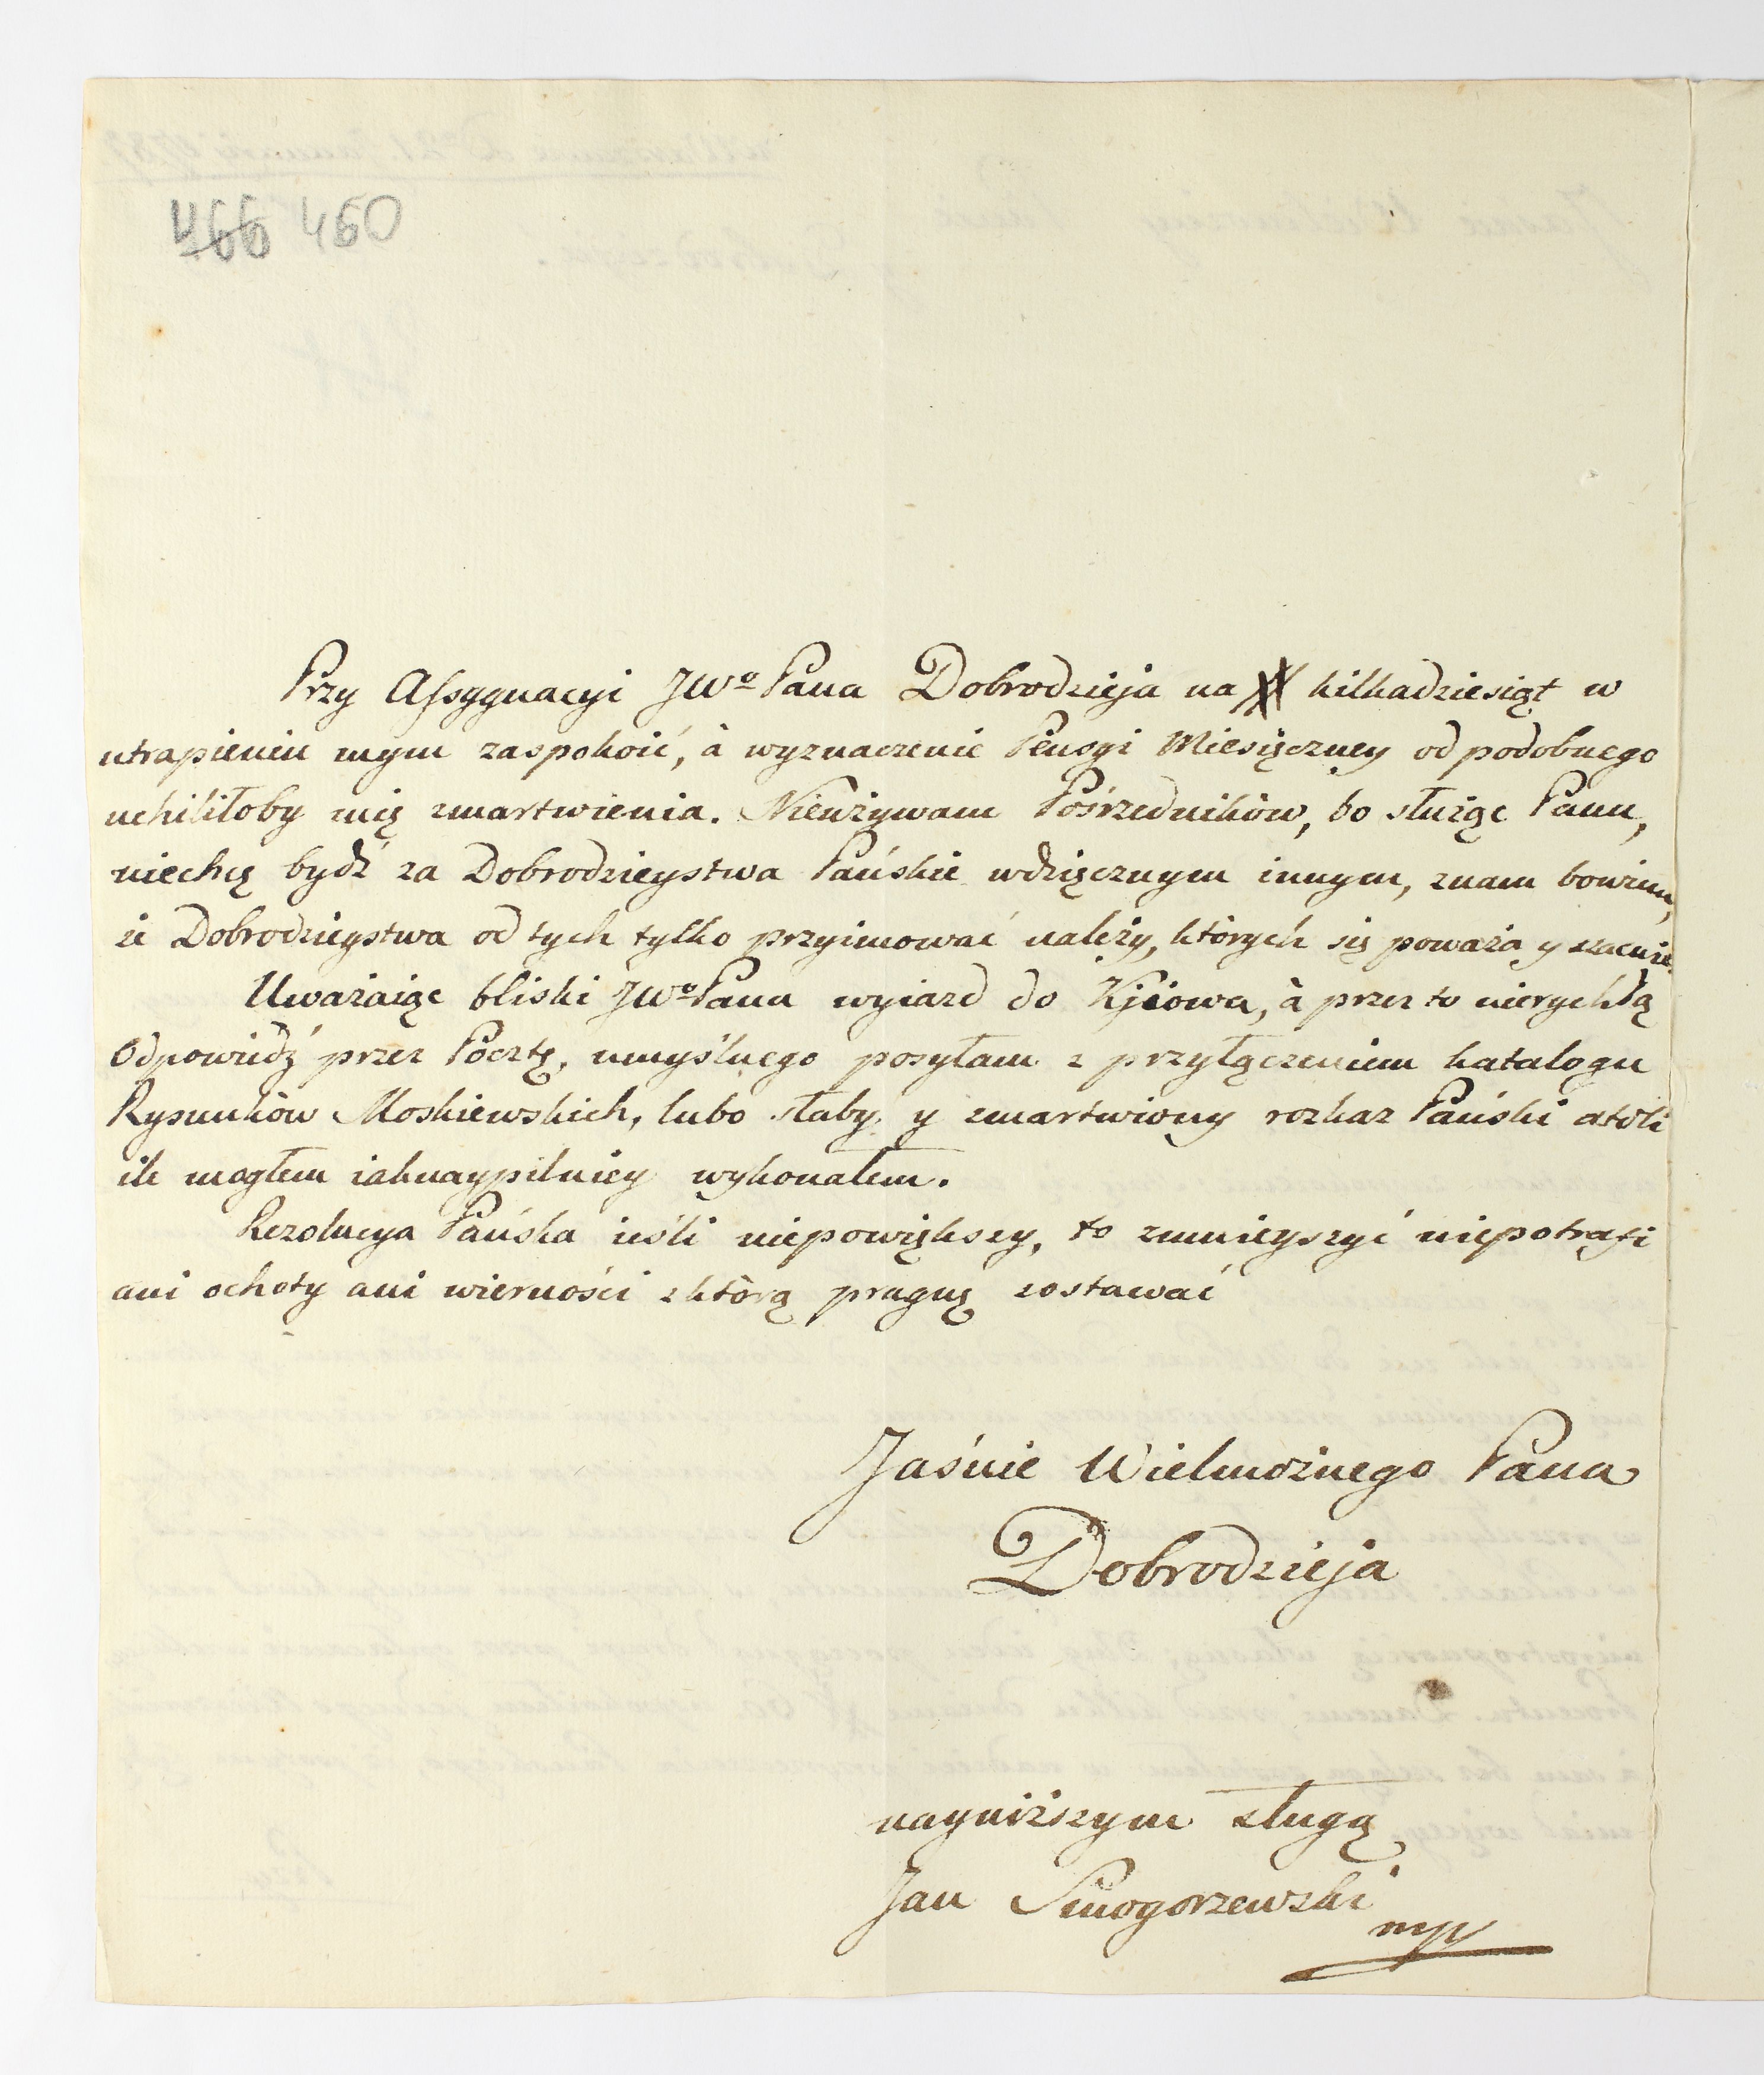 466 460
Przy Assygnacyi JWo Pana Dobrodzieja na kilkadziesiąt w
utrapieniu mym zaspokoić, à wyznaczenie Pensyi Miesięczney od podobnego
uchiliłoby mię zmartwienia. Nieużywam Pośrzedników, bo służąc Panu,
niechcę bydź za Dobrodzieystwa Pańskie wdzięcznym innym, znam bowiem,
że Dobrodzieystwa od tych tylko przyimować należy, których się poważa y szacuie.
Uważaiąc bliski JWo Pana wyiazd do Kjiowa, à przez to nierychłą
Odpowiedź przez Pocztę, umyślnego posyłam z przyłączeniem katalogu
Rysunków Moskiewskich, lubo słaby y zmartwiony rozkaz Pański atoli
ile mogłem iaknaypilniey wykonałem.
Rezolucya Pańska ieśli niepowiększy, to zmnieyszyć niepotrafi
ani ochoty ani wierności z którą pragnę zostawać
Jaśnie Wielmożnego Pana
Dobrodzieja
nayniższym sługą
Jan Smogorzewski
mp